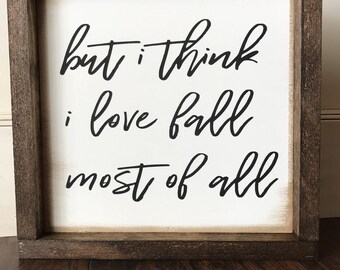 but i think
i love fall
most of all